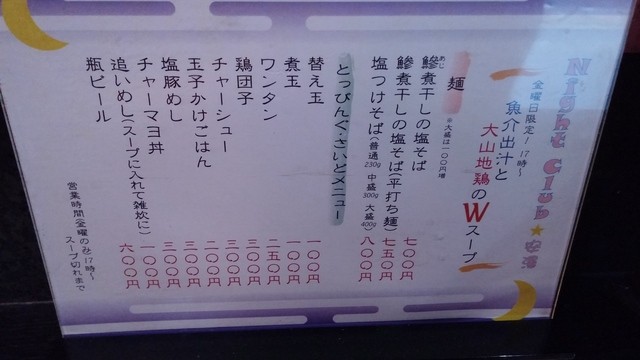 Night Club★
金曜日限定！17時～
魚介出汁と
大山地鶏のWスープ
麺 ※大盛は一〇〇円増
あじ
鯵煮干しの塩そば 七〇〇円
鯵煮干しの塩そば(平打ち麺) 七五〇円
塩つけそば(普通230g 中盛300g 大盛400g) 八〇〇円
とっぴんぐ・さいどメニュー
替え玉 一〇〇円
煮玉 一〇〇円
ワンタン 二五〇円
鶏団子 三〇〇円
チャーシュー 三〇〇円
玉子かけごはん 二〇〇円
塩豚めし 三〇〇円
チャーマヨ丼 三〇〇円
追いめし(スープに入れて雑炊に) 一〇〇円
瓶ビール 六〇〇円
営業時間(金曜のみ)17時～
スープ切れまで